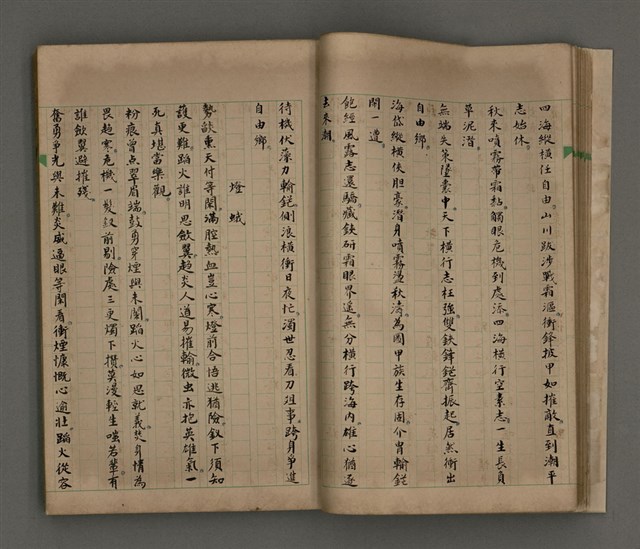 四海縱橫任自由。山川跋涉戰霜溷。衝鋒披甲如摧敵。直到潮平
志始休。
秋來噴霧帶霜黏。觸眼危機到處添。四海橫行空素志。一生長負
草泥潛。
無端失策墮囊中。天下橫行志枉強。雙鈇鋒鋩齊振起。居然衝出
自由鄉。
海岱縱橫俠胆豪。潛身噴霧盪秋濤。為圖甲族生存固。介冑輸鋩
開一道。
飽經風露志還驕。藏鈇斫霜眼界遙。無分橫行跨海內。雄心猶逐
去來潮。
待機伏藻刀輸鋩。側浪橫衝日夜忙。濁世忍看刀俎事。跨身爭進
自由鄉。
燈蛾
勢燄重天付等閑。滿腔熱血豈心寒。燈前合悟逃猶險。釵下須知
護更難。蹈火誰明思斂翼。趨炎人道易摧輪。微虫亦抱英雄氣。一
死真堪當樂觀。
粉痕曾点翠眉端。鼓勇穿煙興未闌。蹈火心如思就義。焚身情為
畏趨寒。危機一髮紋前剔。險處三更燭下攢。莫漫輕生嗤若輩。有
誰斂翼避摧殘。
奮勇爭光興未難。炎威逼眼等閑看。衝煙慷慨心逾壯。蹈火從容